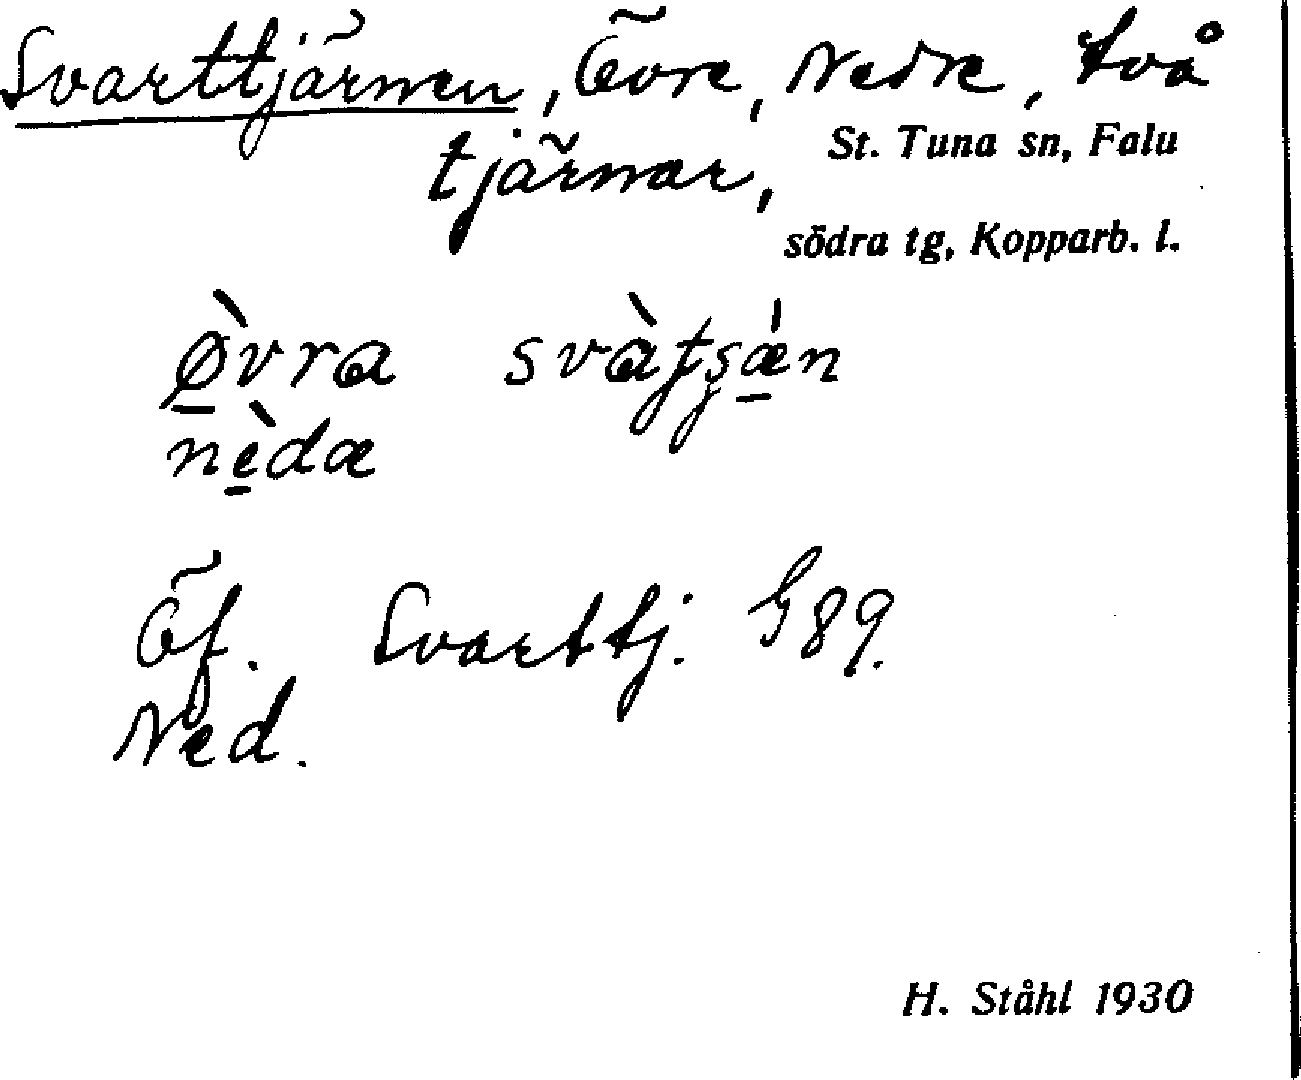 Svarttjärnen, Övre, Nedre, två
tjärnar,
St. Tuna sn, Falu
södra tg, Kopparb. l.
ø̀vra svàtsæ̀n
nèdæ
Öf. Svarttj. G89.
Ned.
H. Ståhl 1930